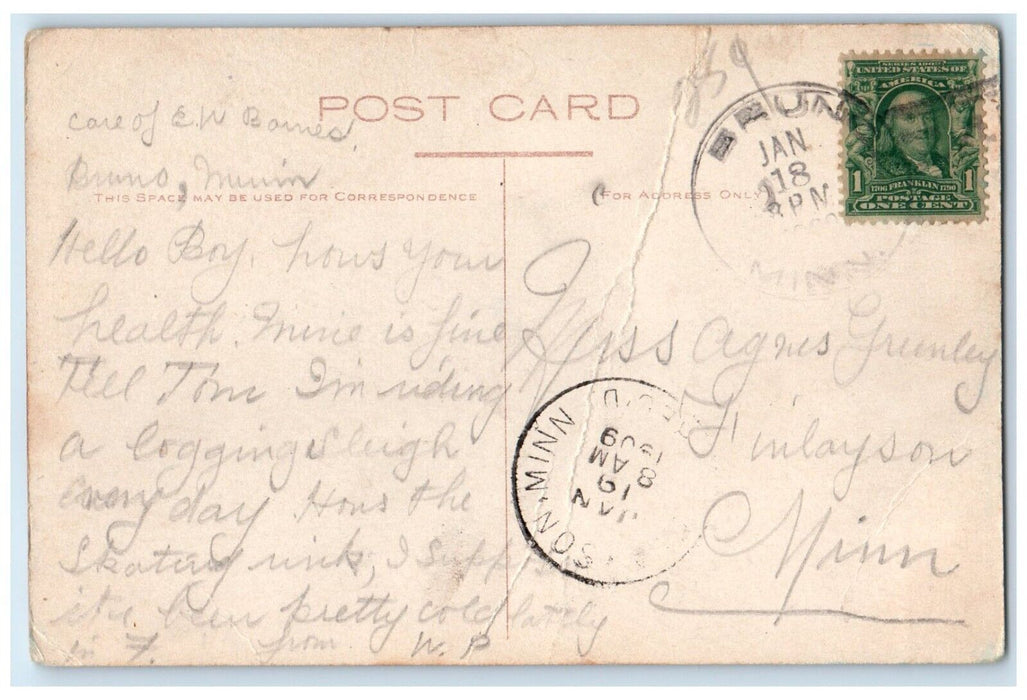 POST CARD
care of E. W Barnes
Bruno, Minn
THIS SPACE MAY BE USED FOR CORRESPONDENCE
Hello Boy. hows your
health. Mine is fine
Tell Tom I'm riding
a logging Sleigh
every day Hows the
Skating rink, I suppose
it's been pretty cold lately
in F. from W. P
FOR ADDRESS ONLY
Miss Agnes Greenley
Finlayson
Minn
BRUNO
JAN
18
3 PM
MINN.
SERIES 1902
UNITED STATES OF
AMERICA
1 1706 FRANKLIN 1790 1
POSTAGE
ONE CENT
SON. MINN
JAN
19
8 AM
1909
REC'D